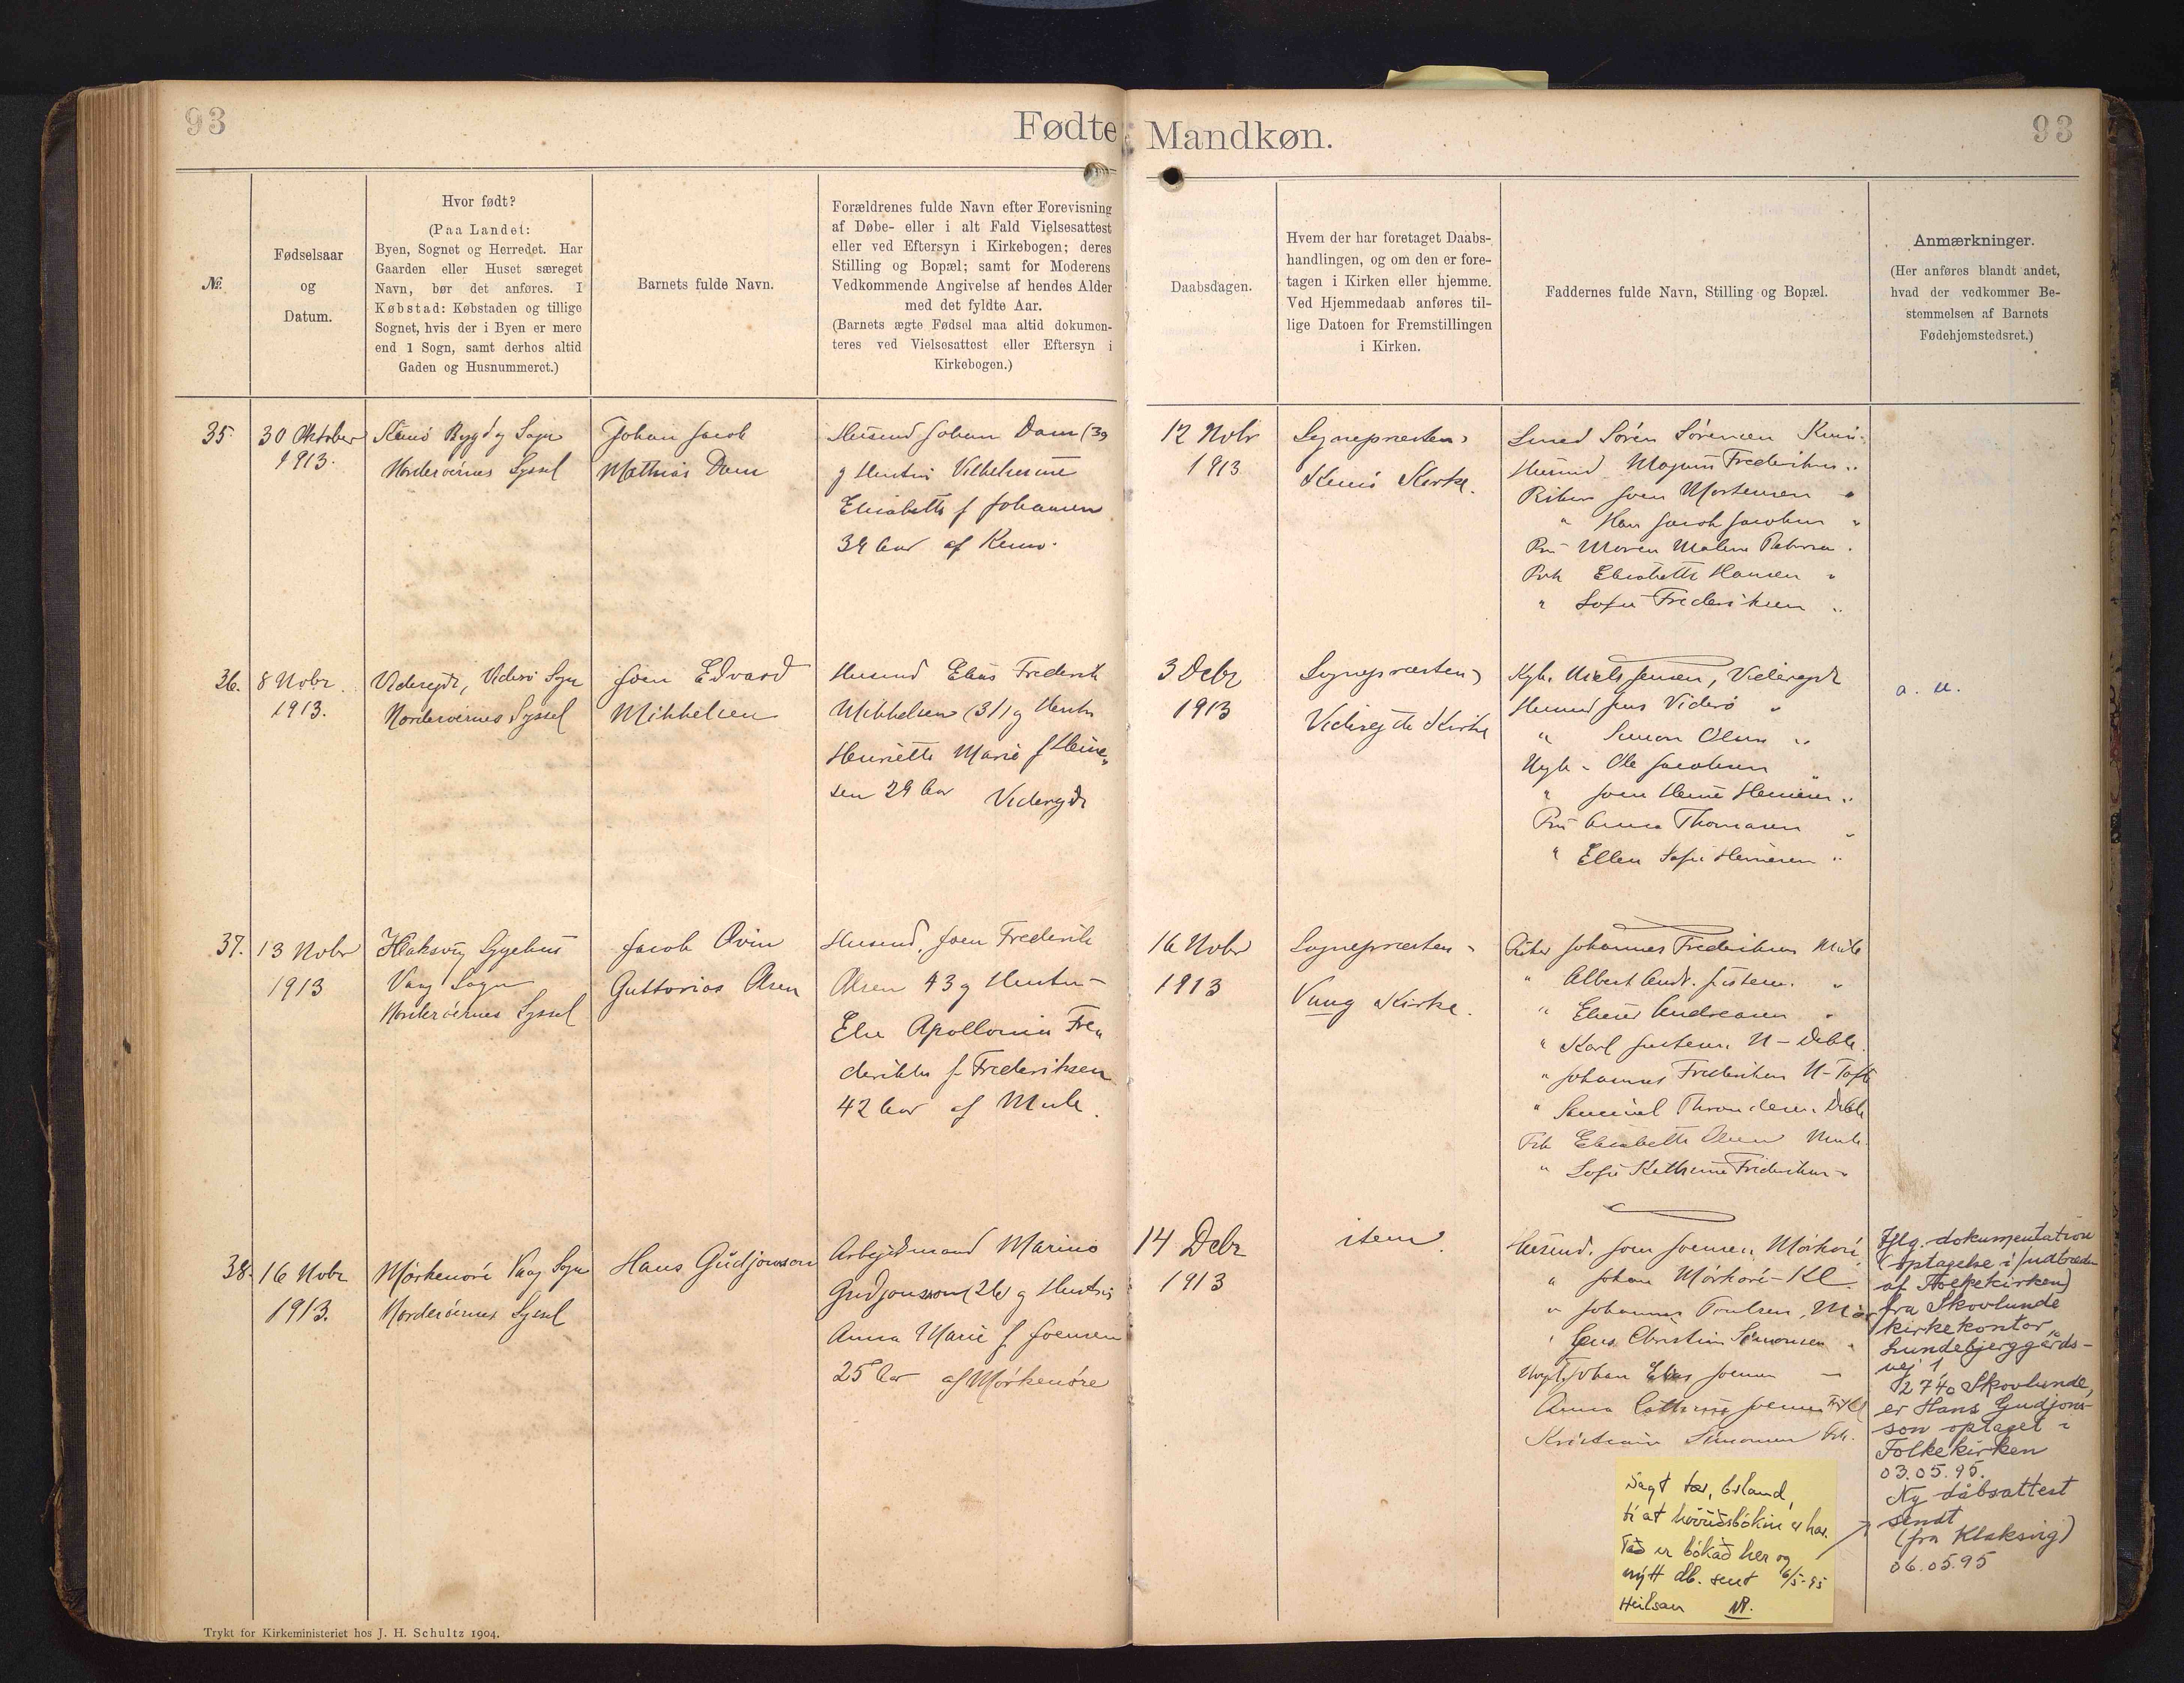 93
Fødte Mandkøn.
93
№
Fødselsaar
og
Datum.
Hvor født?
(Paa Landet:
Byen, Sognet og Herredet. Har
Gaarden eller Huset særeget
Navn, bør det anføres. I
Købstad: Købstaden og tillige
Sognet, hvis der i Byen er mere
end 1 Sogn, samt derhos altid
Gaden og Husnummeret.)
Barnets fulde Navn.
Forældrenes fulde Navn efter Forevisning
af Døbe- eller i alt Fald Vielsesattest
eller ved Eftersyn i Kirkebogen; deres
Stilling og Bopæl; samt for Moderens
Vedkommende Angivelse af hendes Alder
med det fyldte Aar.
(Barnets ægte Fødsel maa altid dokumen-
teres ved Vielsesattest eller Eftersyn i
Kirkebogen.)
Daabsdagen.
Hvem der har foretaget Daabs-
handlingen, og om den er fore-
tagen i Kirken eller hjemme.
Ved Hjemmedaab anføres til-
lige Datoen for Fremstillingen
i Kirken.
Faddernes fulde Navn, Stilling og Bopæl.
Anmærkninger.
(Her anføres blandt andet,
hvad der vedkommer Be-
stemmelsen af Barnets
Fødehjemstedsret.)
35.
30 Oktober
1913.
Kunö Bygd og Sogn
Norderöernes Syssel
Johan Jacob
Mathias Dam
Husmd Johan Dam (39
og Hustru Vilhelmine
Elisabeth f Johansen
39 Aar af Kunö.
12 Nobr
1913
Sognepræsten
Kunö Kirke.
Smed Sören Sörensen Kunö
Husmd Magnus Frederiksen "
Joen Mortensen "
" Hans Jacob Jacobsen "
Maren Malene
Elisabeth Hansen "
" Sofie Frederiksen "
36.
8 Nobr.
1913.
Viderejde, Viderö Sogn
Norderöernes Syssel
Joen Edvard
Mikkelsen
Husmd Elias Frederik
Mikkelsen (31) og Hustru
Henriette Marie f Heine-
sen 29 Aar Viderejde
3 Debr
1913
Sognepræsten
Viderejde Kirke
Niels Jensen, Viderejde
Husmd Jens Viderö "
" Simon Olsen "
Ole Jacobsen
" Joen Heine Heinesen "
Anna Thomasen "
" Ellen Sofie Heinesen "
a. u.
37.
13 Nobr
1913
Klaksvig Sygehus
Vaag Sogn
Norderöernes Syssel
Jacob Övin
Guttorius Olsen
Husmd. Joen Frederik
Olsen 43 og Hustru
Else Apollonia Fre-
derikke f Frederiksen
42 Aar af Mule.
16 Nobr
1913
Sognepræsten
Vaag Kirke.
Johannes Frederiksen Mule
" Albert Andr. Justesen. "
" Andreasen "
" Karl Justesen N-Deble.
" Johannes Frederiksen N-Tofte
" Samuel Throndesen. Deble
Elisabeth Olsen Mule.
" Sofie Kathrine Frederiksen "
38.
16 Nobr
1913.
Mörkenöre Vaag Sogn
Norderöernes Syssel
Hans Gudjonsson
Arbejdsmand Marino
Gudjonsson (26) og Hustru
Anna Marie f Joensen
25 Aar af Mörkenöre
14 Debr
1913
item.
Husmd. Joen Joensen Mörköre
" Johan Mörköre - Kl.
" Johannes Poulsen, Mör
" Jens Christian Simonsen "
Johan Elias Joensen
Anna Cathrine Joensen
Simonsen
Iflg. dokumentation
(optagelse i/udtræden
af Folkekirken)
fra Skovlunde
kirkekontor,
Lundebjerggårds-
vej 1
2740 Skovlunde,
er Hans Gudjons-
son optaget i
Folkekirken
03.05.95.
Ny dåbsattest
sendt
(fra Klaksvig)
06.05.95
Sagt tær, Erland,
ti at høvuðsbókin er har.
Tað er bókað her og
nýtt db. sent 6/5-95
Heilsan
Trykt for Kirkeministeriet hos J. H. Schultz 1904.